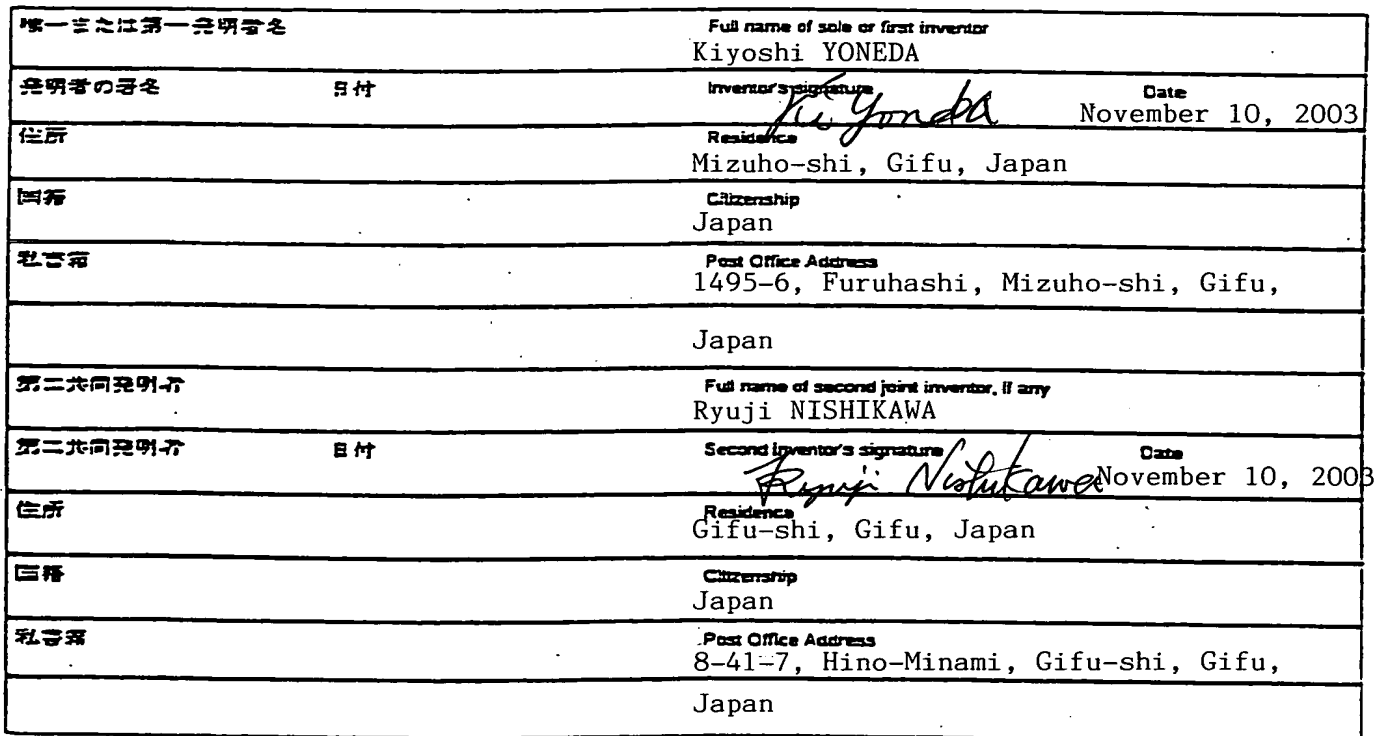 唯一または第一発明者名 Full name of sole or first inventor
Kiyoshi YONEDA
発明者の署名 日付 Inventor's signature Date
Yoneda November 10, 2003
住所 Residence
Mizuho-shi, Gifu, Japan
国籍 Citizenship
Japan
私書箱 Post Office Address
1495-6, Furuhashi, Mizuho-shi, Gifu,
Japan
第二共同発明者 Full name of second joint inventor, if any
Ryuji NISHIKAWA
第二共同発明者 日付 Second inventor's signature Date
Ryuji Nishikawa November 10, 2003
住所 Residence
Gifu-shi, Gifu, Japan
国籍 Citizenship
Japan
私書箱 Post Office Address
8-41-7, Hino-Minami, Gifu-shi, Gifu,
Japan